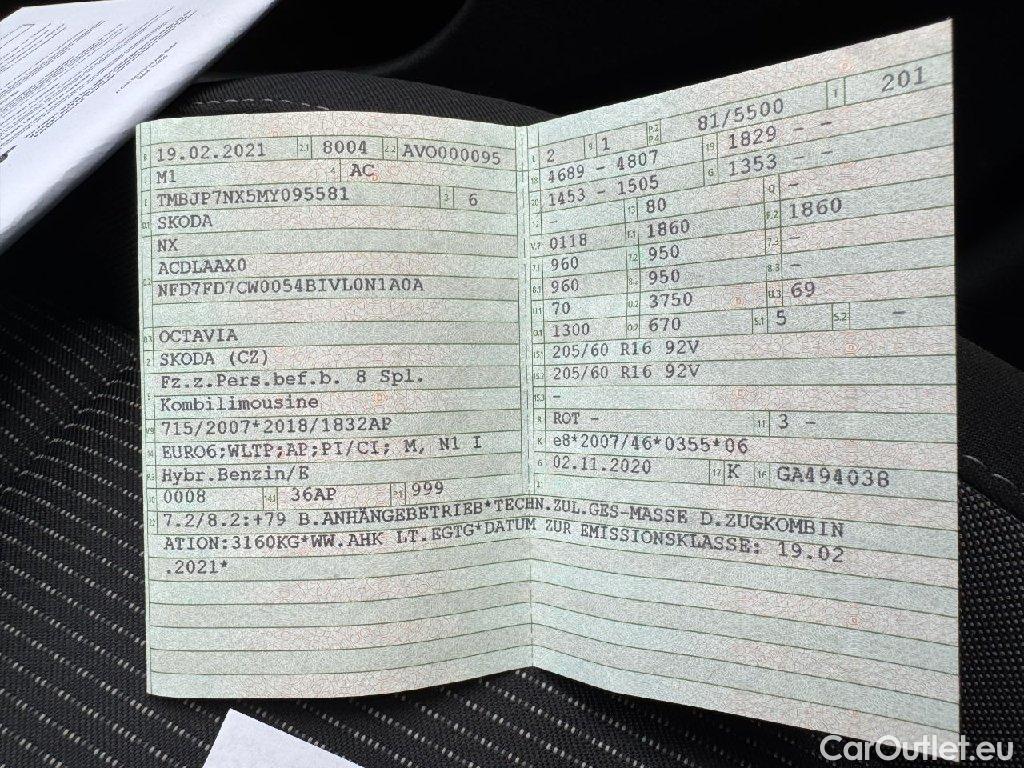 B 19.02.2021 2.1 8004 2.2 AVO000095
M1 4 AC
TMBJP7NX5MY095581 3 6
D.1 SKODA
NX
ACDLAAX0
NFD7FD7CW0054BIVL0N1A0A
D.3 OCTAVIA
2 SKODA (CZ)
Fz.z.Pers.bef.b. 8 Spl.
5 Kombilimousine
V.9 715/2007*2018/1832AP
14 EURO6;WLTP;AP;PI/CI; M, N1 I
P.3 Hybr.Benzin/E
10 0008 14.1 36AP P.1 999
22 7.2/8.2:+79 B.ANHÄNGEBETRIEB*TECHN.ZUL.GES-MASSE D.ZUGKOMBIN
ATION:3160KG*WW.AHK LT.EGTG*DATUM ZUR EMISSIONSKLASSE: 19.02
.2021*
L 2 9 1 P.2 P.4 81/5500 T 201
18 4689 - 4807 19 1829 - -
20 1453 - 1505 G 1353 - -
- 13 80 Q -
V.7 0118 F.1 1860 F.2 1860
7.1 960 7.2 950 7.3 -
8.1 960 8.2 950 8.3 -
U.1 70 U.2 3750 U.3 69
O.1 1300 O.2 670 S.1 5 S.2 -
15.1 205/60 R16 92V
15.2 205/60 R16 92V
15.3 -
R ROT - 11 3 -
K e8*2007/46*0355*06
6 02.11.2020 17 K 16 GA494038
CarOutlet.eu